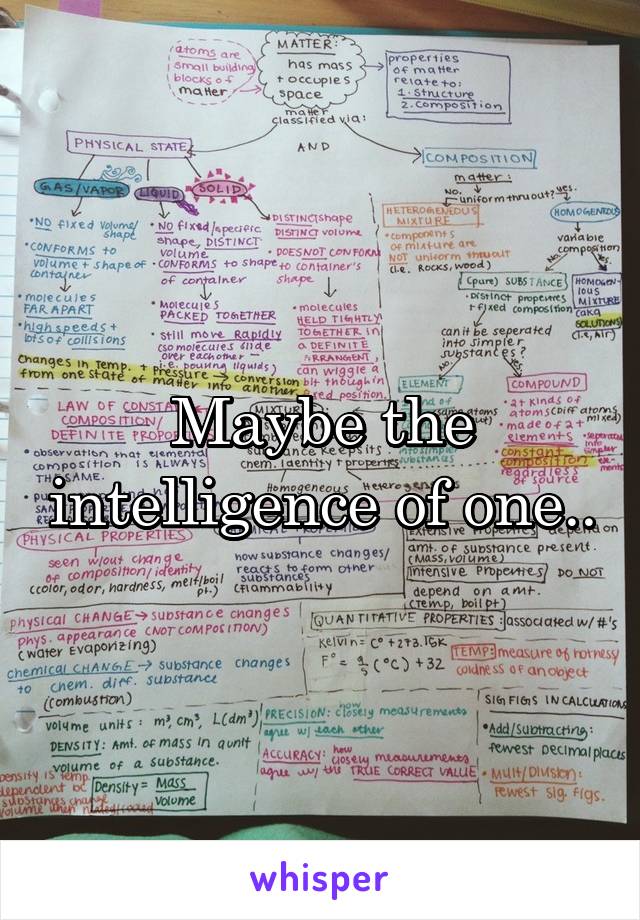 MATTER:
has mass
+ occupies
space
atoms are
small building
blocks of
matter
properties
of matter
relate to:
1. structure
2. composition
matter
classified via:
PHYSICAL STATE
AND
COMPOSITION
GAS/VAPOR
LIQUID
SOLID
• NO fixed volume/
shape
• CONFORMS to
volume + shape of
container
• molecules
FAR APART
• high speeds +
lots of collisions
• NO fixed/specific
shape, DISTINCT
volume
• CONFORMS to shape
of container
• Molecules
PACKED TOGETHER
• still move Rapidly
(so molecules slide
over eachother –
i.e. pouring liquids)
• DISTINCT shape
DISTINCT volume
• DOES NOT CONFORM
to container's
shape
• molecules
HELD TIGHTLY
TOGETHER in
a DEFINITE
ARRANGENT,
can wiggle a
bit though in
fixed position.
changes in Temp. + Pressure → conversion
from one state of matter into another
matter:
no. uniform thruout? yes.
HETEROGENEOUS
MIXTURE
• components
of mixture are
NOT uniform thruout
(i.e. ROCKS, wood)
HOMOGENEOUS
variable
composition
No
Yes
(pure) SUBSTANCE
• Distinct properties
+ fixed composition
HOMOGEN-
IOUS
MIXTURE
(aka
SOLUTIONS)
(i.e, Air)
can it be seperated
into simpler
substances?
NO
ELEMENT
COMPOUND
• 2+ kinds of
atoms (Diff atoms,
mixed)
• made of 2+
elements
• constant
composition
regardless
of source
LAW OF CONSTANT
COMPOSITION/
DEFINITE PROPO
• observation that elemental
composition IS ALWAYS
THE SAME.
MIXTURE
substance keeps its
chem. identity + properties
Homogeneous
Heterogen
Maybe the
intelligence of one..
PHYSICAL PROPERTIES
seen w/out change
of composition/identity
(color, odor, hardness, melt/boil
pt.)
how substance changes/
reacts to form other
substances
(flammability
Extensive Properties depend on
amt. of substance present.
(Mass, volume)
Intensive Properties DO NOT
depend on amt.
(Temp, boil pt)
physical CHANGE → substance changes
phys. appearance (NOT COMPOSITION)
(water Evaporizing)
chemical CHANGE → substance changes
to chem. diff. substance
(combustion)
QUANTITATIVE PROPERTIES: associated w/ #'s
Kelvin = C° + 273.15K
F° = 9/5 (°C) + 32
TEMP: measure of hotness/
coldness of an object
volume units: m³, cm³, L(dm³)
DENSITY: Amt. of mass in a unit
volume of a substance.
Density is temp.
dependent bc
substances change
volume when heated/cooled
Density = Mass
Volume
PRECISION: how closely measurements
agree w/ each other
ACCURACY: how closely measurements
agree w/ the TRUE CORRECT VALUE
SIG FIGS IN CALCULATIONS
• Add/Subtracting:
fewest decimal places
• Mult/Division:
Fewest sig. figs.
whisper